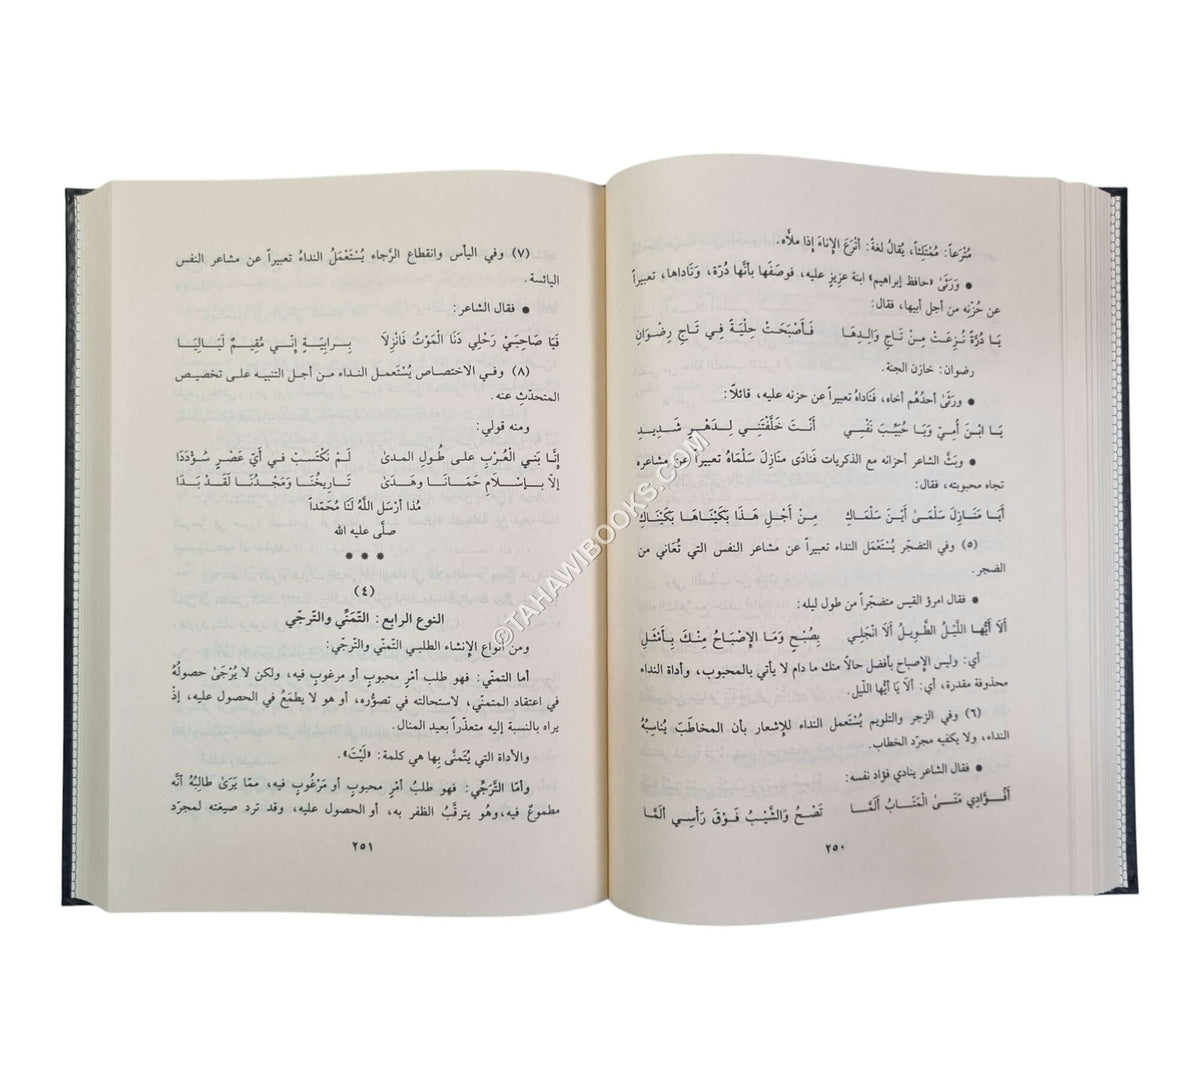 مُتْرَعاً: مُمْتَلِئاً، يُقالُ لغةً: أتْرَعَ الإِناءَ إذا ملأه.
● ورَثَىٰ «حافظ إبراهيم» ابنة عزيزٍ عليه، فوصَفَها بأنَّها دُرّة، ونَاداها، تعبيراً
عن حُزْنه من أجل أبيها، فقال:
يَا دُرَّةً نُزِعَتْ مِنْ تَاجِ وَالِدِهَا فَأَصْبَحَتْ حِلْيَةً فِي تَاجِ رِضْوَانِ
رضوان: خازن الجنة.
● ورثَىٰ أحدُهُم أخاه، فَنَاداهُ تعبيراً عن حزنه عليه، قائلاً:
يَا ابْنَ أُمِّيْ وَيَا حُبَيِّبَ نَفْسِي أَنْتَ خَلَّفْتَنِي لِدَهْرٍ شَدِيدِ
● وبَثَّ الشاعر أحزانه مع الذكريات فَنادى مَنَازِلَ سَلْمَاهُ تعبيراً عن مشاعره
تجاه محبوبته، فقال:
أيَا مَنَازِلَ سَلْمَىٰ أَيْنَ سَلْمَاكِ مِنْ أَجْلِ هَذَا بَكَيْنَاهَا بَكَيْنَاكِ
(٥) وفي التضجّر يُسْتَعْمَل النداء تعبيراً عن مشاعر النفس التي تُعَاني من
الضجر.
● فقال امرؤ القيس متضجّراً من طول ليله:
أَلاَ أَيُّهَا اللَّيْلُ الطَّوِيلُ أَلاَ انْجَلِي بِصُبْحٍ وَمَا الإِصْبَاحُ مِنْكَ بِأَمْثَلِ
أي: وليس الإِصباح بأفضل حالاً منك ما دام لا يأتي بالمحبوب، وأداة النداء
محذوفة مقدرة، أي: ألاَ يَا أيُّها اللّيل.
(٦) وفي الزجر والتلويم يُسْتَعمل النداء للإِشعار بأن المخاطَبَ يُنَاسِبُهُ
النداء، ولا يكفيه مجرّد الخطاب.
● فقال الشاعر ينادي فؤاد نفسه:
أَفُؤَادِي مَتَىٰ الْمَتَابُ أَلَمَّا تَصْحُ وَالشَّيْبُ فَوْقَ رَأْسِي أَلَمَّا
٢٥٠
(٧) وفي اليأس وانقطاع الرَّجاء يُسْتَعْمَلُ النداءُ تعبيراً عن مشاعر النفس
اليائسة.
● فقال الشاعر:
فَيَا صَاحِبَيْ رَحْلِي دَنَا الْمَوْتُ فَانْزِلاَ بِرَابِيَةٍ إِنِّي مُقِيمٌ لَيَالِيَا
(٨) وفي الاختصاص يُسْتَعمل النداء من أجل التنبيه على تخصيص
المتحدّث عنه.
ومنه قولي:
إِنَّا بَنِي الْعُرْبِ على طُولِ المدىٰ لَمْ نَكْتَسِبْ فِي أَيِّ عَصْرٍ سُؤْدَدَا
إِلاَّ بِإِسْلاَمٍ حَمَانَا وهَدىٰ تَارِيخُنَا وَمَجْدُنَا لَقَدْ بَدَا
مُذا أرْسَلَ اللَّهُ لَنَا مُحَمّداً
صلَّى عليه الله
* * *
(٤)
النوع الرابع: التّمَنِّي والتّرجّي
ومن أنواع الإِنشاء الطلبي التّمَنِّي والتّرجّي:
أما التمنّي: فهو طلب أمْرٍ محبوبٍ أو مرغوبٍ فيه، ولكن لا يُرْجَىٰ حصولُهُ
في اعتقاد المتمنّي، لاستحالته في تصوُّره، أو هو لا يطمَعُ في الحصول عليه، إذْ
يراه بالنسبة إليه متعذّراً بعيد المنال.
والأداة التي يُتَمنَّى بها هي كلمة: «لَيْتَ».
وأمّا التَّرَجِّي: فهو طلبُ أمْرٍ محبوبٍ أو مَرْغُوبٍ فيه، ممّا يَرَىٰ طالِبُهُ أنَّه
مطموعٌ فيه، وهُو يترقَّبُ الظفر به، أو الحصول عليه، وقد ترد صيغته لمجرّد
٢٥١
©TAHAWIBOOKS.COM